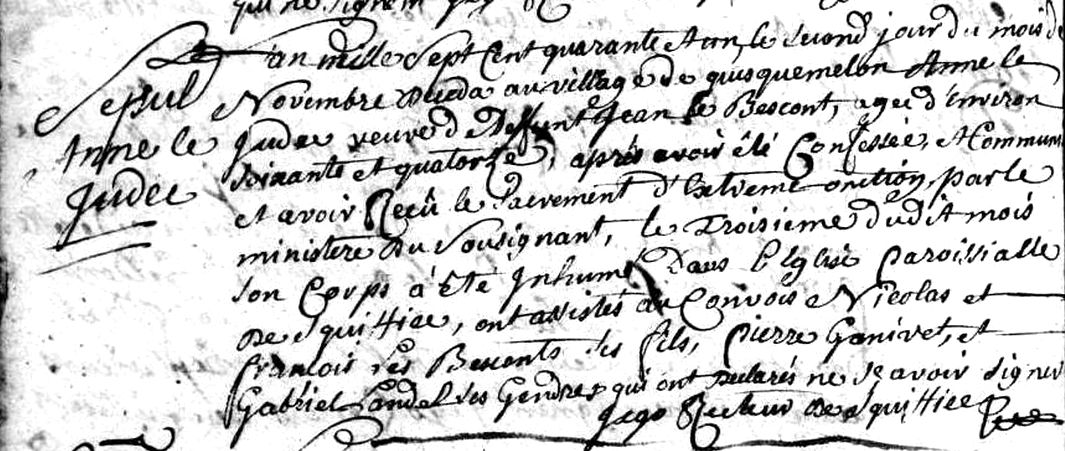 qui ne signent
L'an mille sept cent quarante et un, le second jour du mois de
Sepul
Novembre deceda au village de quisquemelon Anne le
Anne le
Judee veuve de deffunt Jean le Bescont, agee d'environ
Judee
soixante et quatorze, après avoir été Confessée, et Communi
et avoir Reçû le sacrement d'Extreme onction, par le
ministere du sousignant, le Troisieme dudit mois
son Corps à été Inhumé Dans l'Eglise Paroissialle
de s^t quittiee, ont assistés au Convois Nicolas et
francois les Besconts ses fils, Pierre Ganivet, et
Gabriel Condel ses Gendres qui ont declarés ne sçavoir signer
Jego Recteur de s^t quittiee